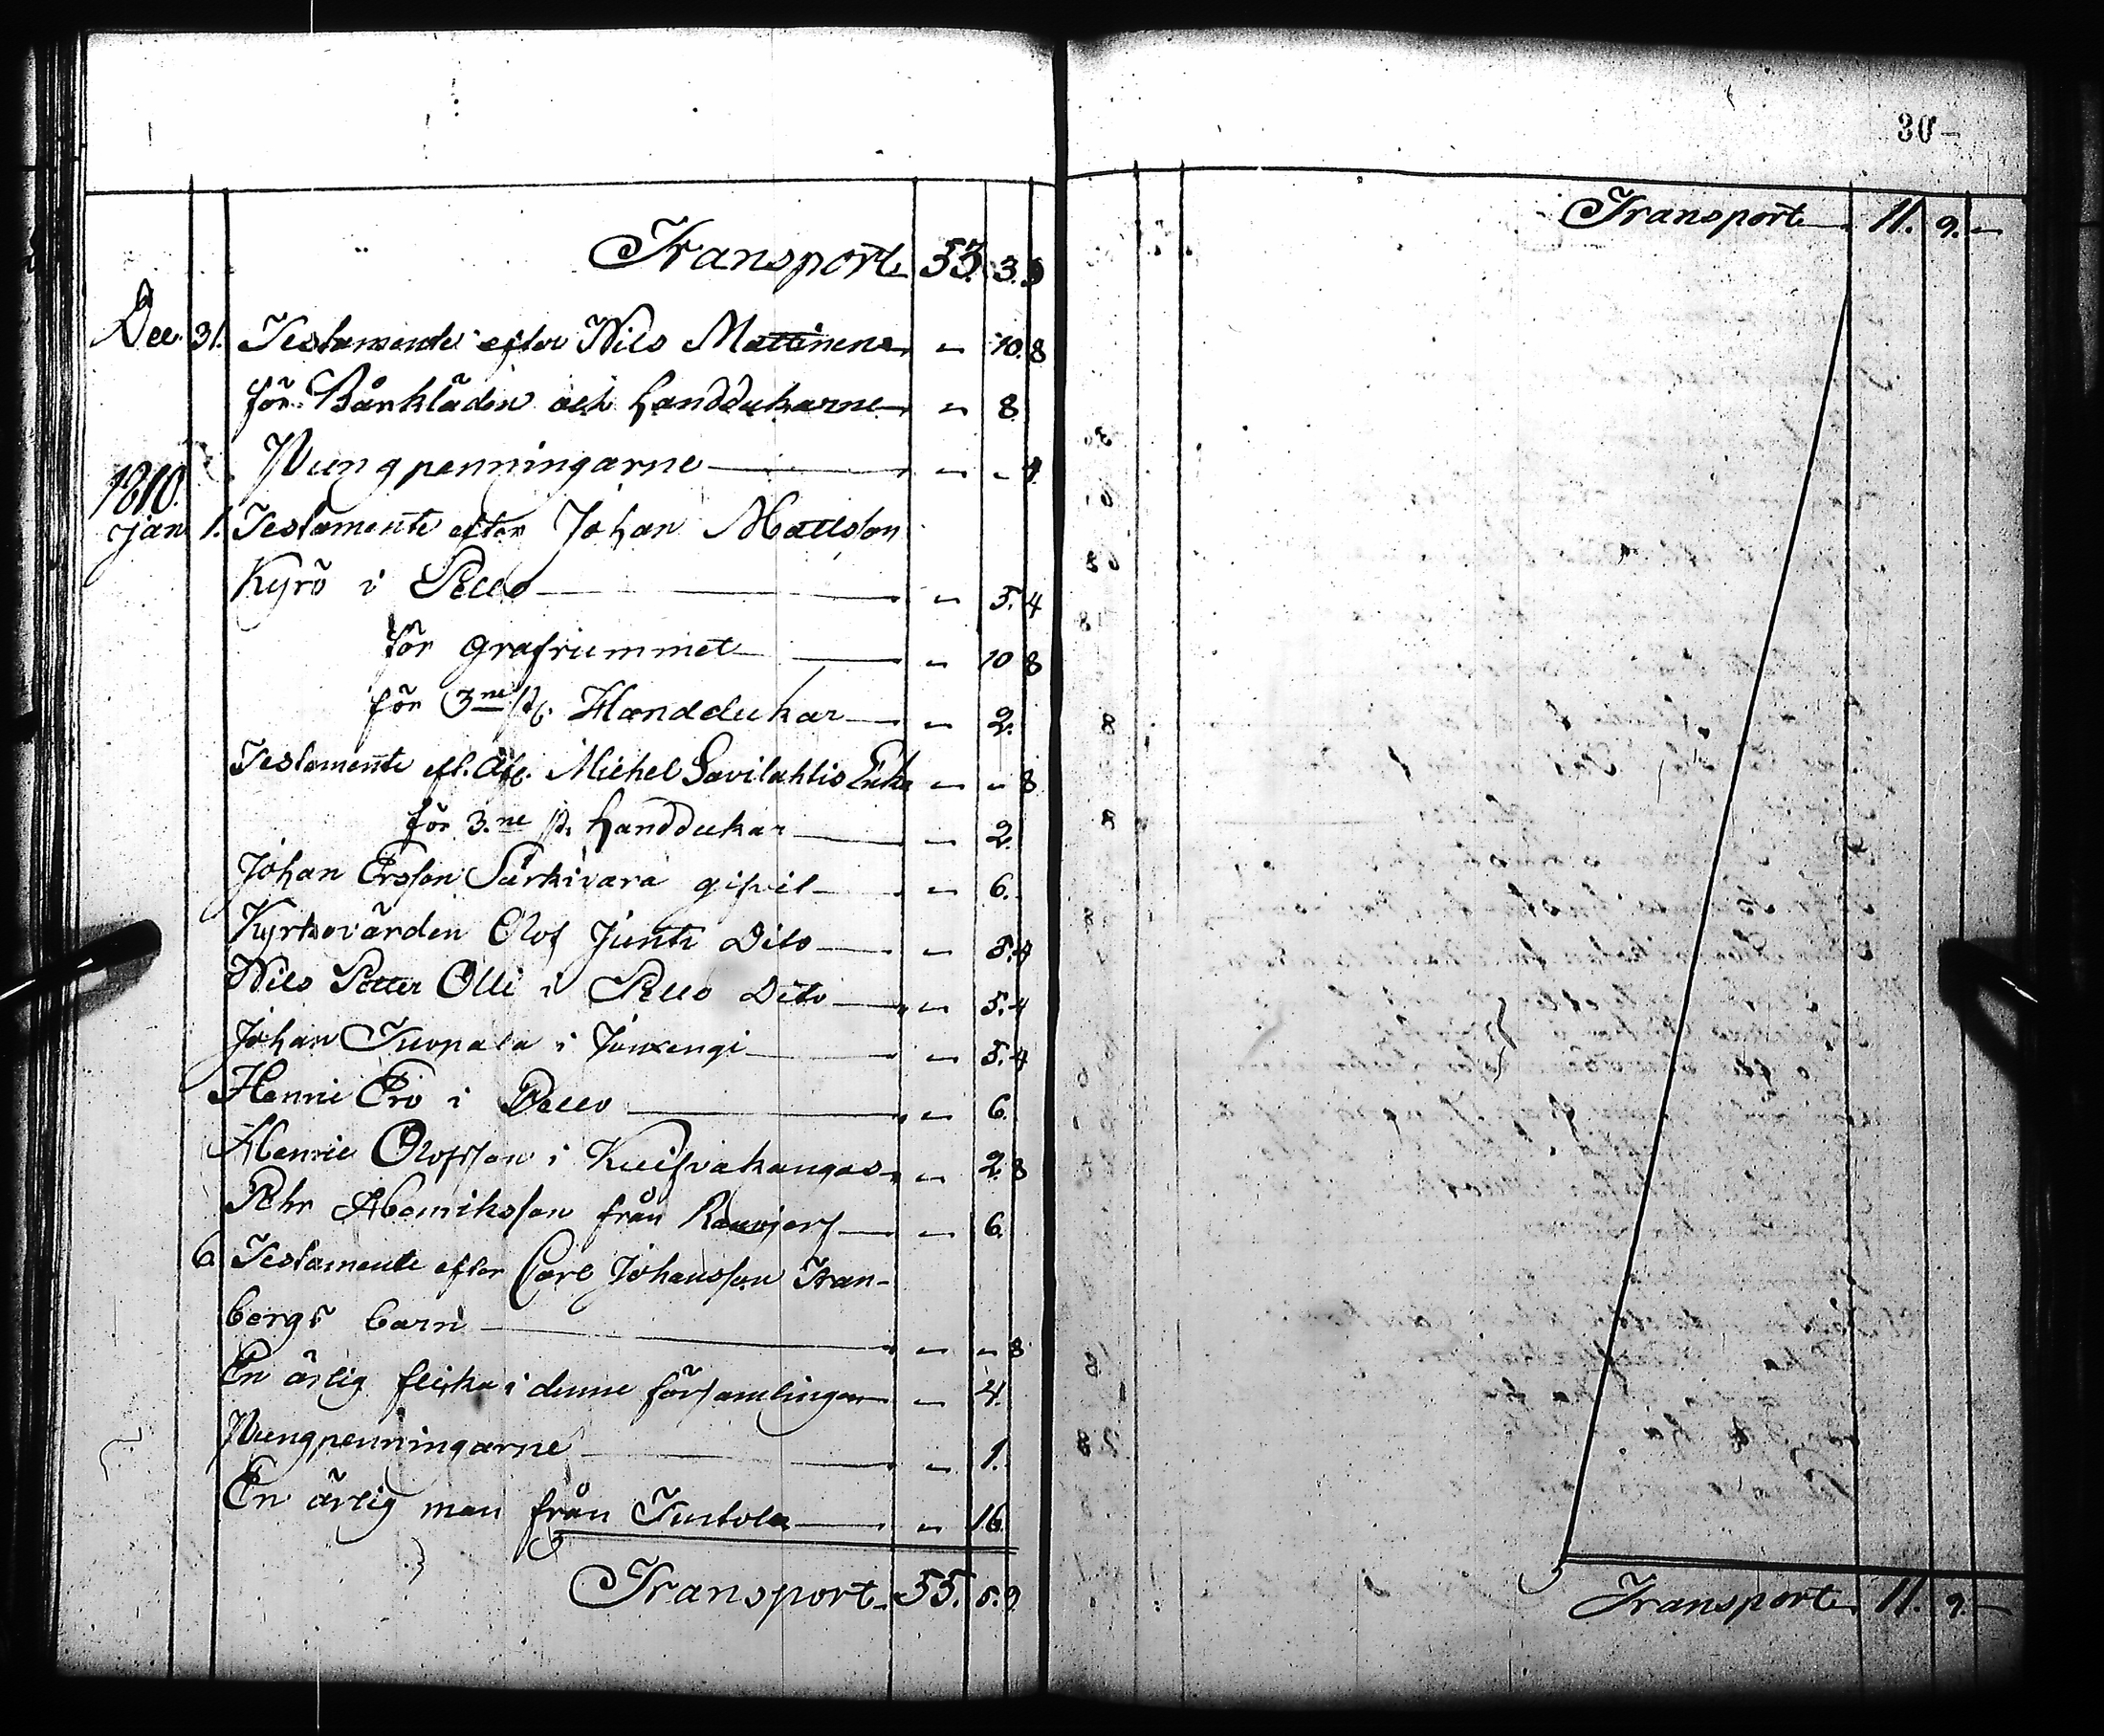 30
Transport 53. 3. 9
Dec. 31. Testamente efter Nils Mattinen " 10. 8
för Bårkläden och handdukarne " 8
Pungpenningarne " " 4
1810.
Jan. 1. Testamente efter Johan Mattsson
Kyrö i Pello " 5. 4
för grafrummet " 10 8
för 3ne st. Handdukar " 2.
Testamente eft. Afl. Michel Savilahtis Enka " " 8
för 3.ne st. handdukar " 2.
Johan Ersson Särkivara gifvit " 6.
Kyrkovärden Olof Junti Dito " 5. 4
Nils Petter Olli i Pello Dito " 5. 4
Johan Tuopala i Jouxengi " 5. 4
Henric Erö i Pello " 6.
Henric Olofsson i Kuifvakangas " 2. 8
Pehr Henriksson från " 6.
6. Testamente efter Carl Johansson Stran-
bergs barn " " 8
En ärlig flicka i denne församlingen " 4.
Pungpenningarne " 1.
En ärlig man från Turtola " 16
Transport 55. 5. 9
Transport 11. 9. —
Transport 11. 9. —